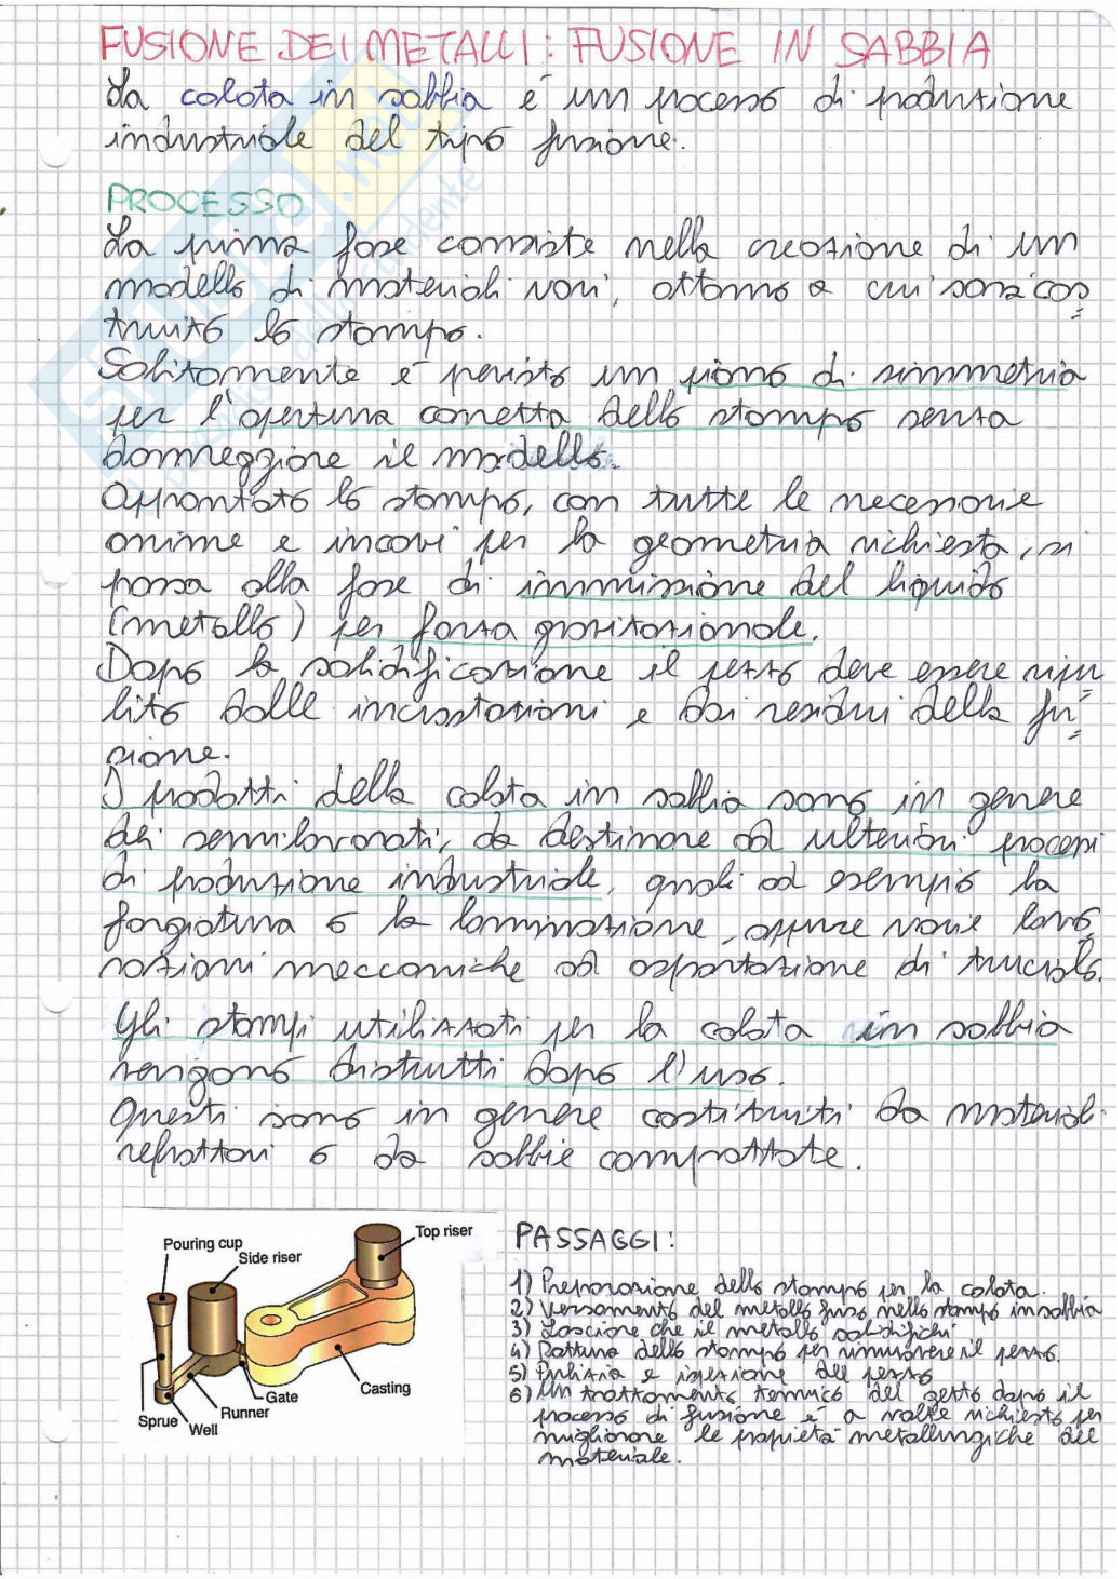 FUSIONE DEI METALLI: FUSIONE IN SABBIA
La colata in sabbia è un processo di produzione
industriale del tipo fusione.
PROCESSO
La prima fase consiste nella creazione di un
modello di materiali vari, attorno a cui sarà cos
truito lo stampo.
Solitamente è previsto un piano di simmetria
per l'apertura corretta dello stampo senza
danneggiare il modello.
Approntato lo stampo, con tutte le necessarie
anime e incavi per la geometria richiesta, si
passa alla fase di immissione del liquido
(metallo) per forza gravitazionale.
Dopo la solidificazione il pezzo deve essere ripu
lito dalle incrostazioni e dai residui della fu
sione.
I prodotti della colata in sabbia sono in genere
dei semilavorati, da destinare ad ulteriori processi
di produzione industriale, quali ad esempio la
forgiatura o la laminazione, oppure varie lavo
razioni meccaniche ad asportazione di truciolo.
Gli stampi utilizzati per la colata in sabbia
vengono distrutti dopo l'uso.
Questi sono in genere costituiti da materiali
refrattari o da sabbie compattate.
Pouring cup
Side riser
Top riser
Casting
Gate
Runner
Sprue
Well
PASSAGGI:
1) Preparazione dello stampo per la colata.
2) Versamento del metallo fuso nello stampo in sabbia
3) Lasciare che il metallo solidifichi
4) Rottura dello stampo per rimuovere il pezzo.
5) Pulizia e ispezione del pezzo
6) Un trattamento termico del getto dopo il
processo di fusione è a volte richiesto per
migliorare le propietà metallurgiche del
materiale.